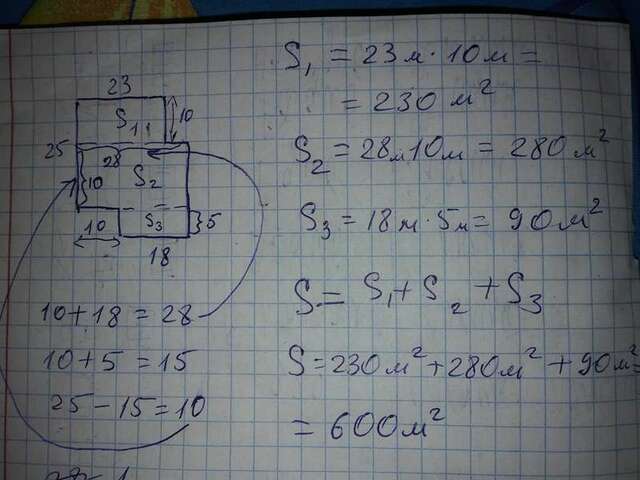 25
23
S₁
10
10
28
S₂
10
S₃
18
5
10 + 18 = 28
10 + 5 = 15
25 - 15 = 10
S₁ = 23м · 10м =
= 230 м²
S₂ = 28м 10м = 280 м²
S₃ = 18м · 5м = 90м²
S = S₁ + S₂ + S₃
S = 230м² + 280м² + 90м² =
= 600м²